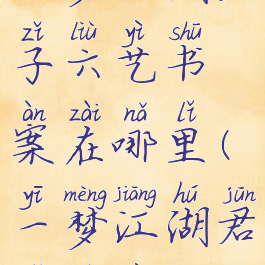 zǐ liù yì shū
子六艺书
àn zài nǎ lǐ
案在哪里(
yī mèng jiāng hú jūn
一梦江湖君